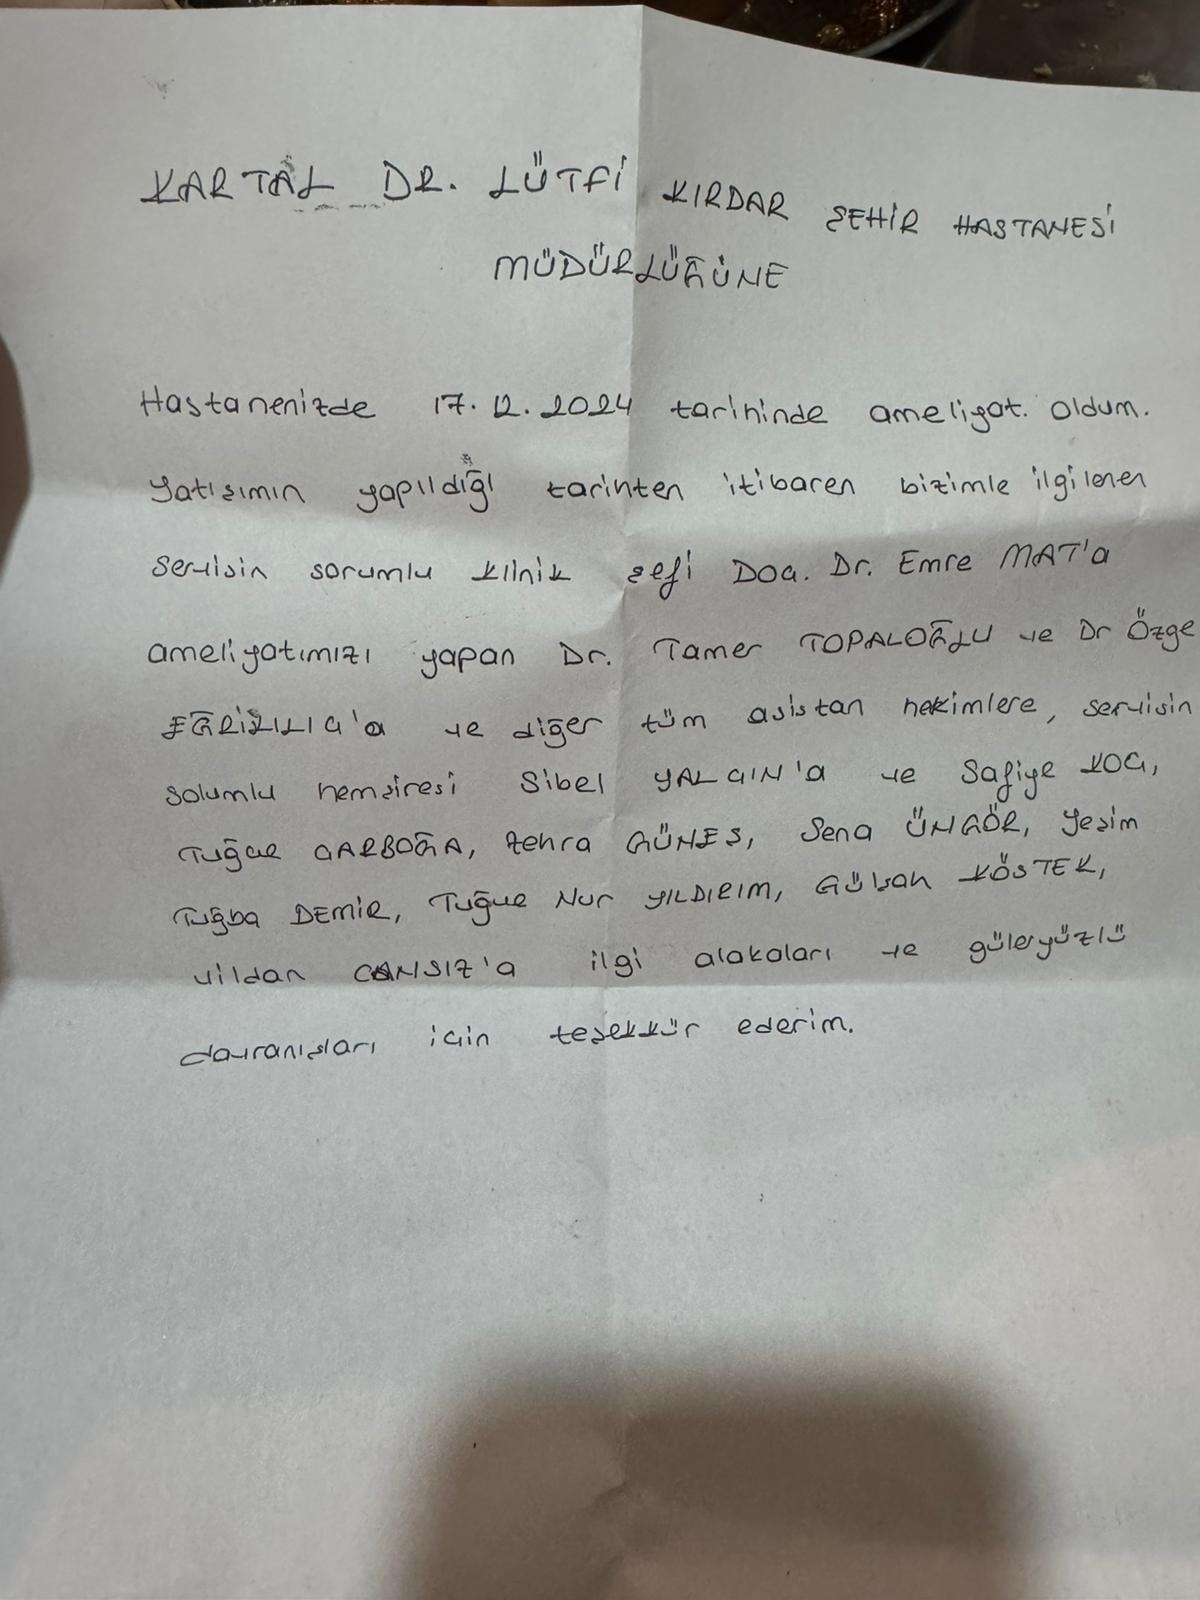 KARTAL DR. LÜTFİ KIRDAR ŞEHİR HASTANESİ
MÜDÜRLÜĞÜNE
Hastanenizde 17.12.2024 tarihinde ameliyat oldum.
Yatışımın yapıldığı tarihten itibaren bizimle ilgilenen
servisin sorumlu klinik şefi Doç. Dr. Emre MAT'a
ameliyatımızı yapan Dr. Tamer TOPALOĞLU ve Dr Özge
EĞRİKILIÇ'a ve diğer tüm asistan hekimlere, servisin
sorumlu hemşiresi Sibel YALÇIN'a ve Safiye KOÇ,
Tuğçe ÇARBOĞA, Zehra GÜNEŞ, Sena ÜNGÖR, Yeşim
Tuğba DEMİR, Tuğçe Nur YILDIRIM, Gülşah KÖSTEK,
Vildan CANSIZ'a ilgi alakaları ve güleryüzlü
davranışları için teşekkür ederim.